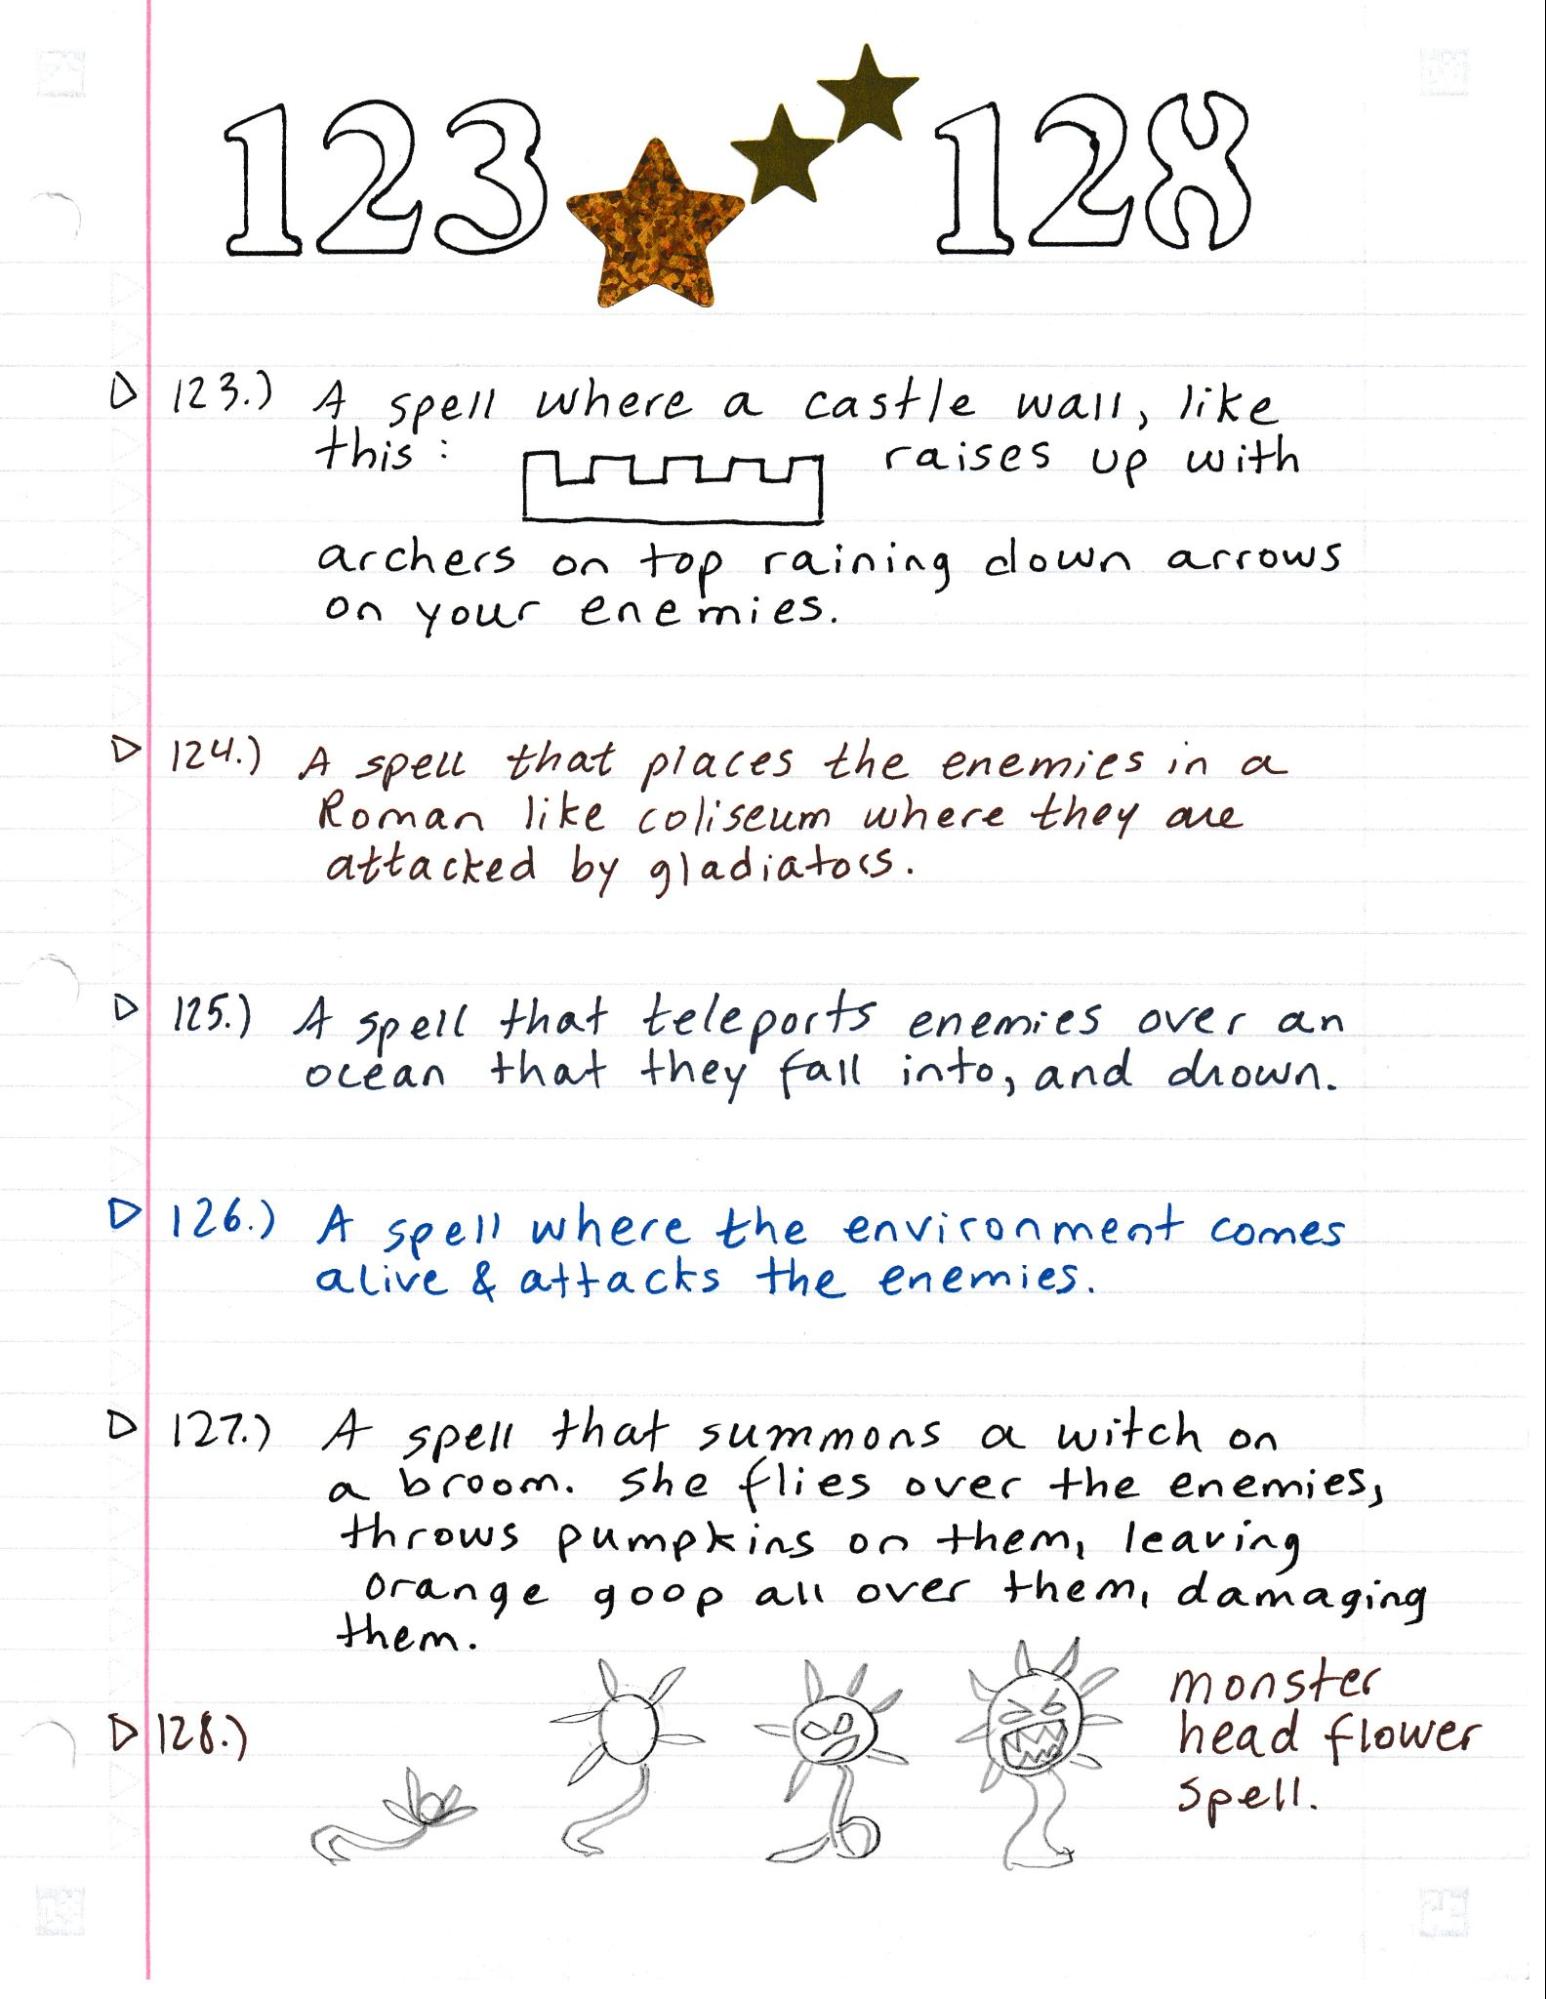 123 128
123.) A spell where a castle wall, like
this: raises up with
archers on top raining down arrows
on your enemies.
124.) A spell that places the enemies in a
Roman like coliseum where they are
attacked by gladiators.
125.) A spell that teleports enemies over an
ocean that they fall into, and drown.
126.) A spell where the environment comes
alive & attacks the enemies.
127.) A spell that summons a witch on
a broom. She flies over the enemies,
throws pumpkins on them, leaving
orange goop all over them, damaging
them.
128.) monster
head flower
spell.